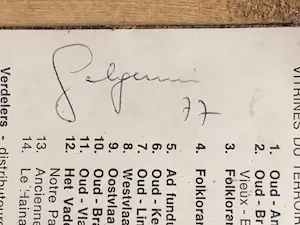 77
VITRINES DU
1. Oud - An
2. Oud - Br
Vieux - B
3. Folklorar
4. Folklorar
5. Ad fundu
6. Oud - Ke
7. Oud - Lin
8. Westvlaa
9. Oostvlaa
10. Oud - Bra
11. Oud - Vla
12. Het Vade
Notre Pa
13. Ancienne
14. Le 'Haina
Verdelers - distributeurs